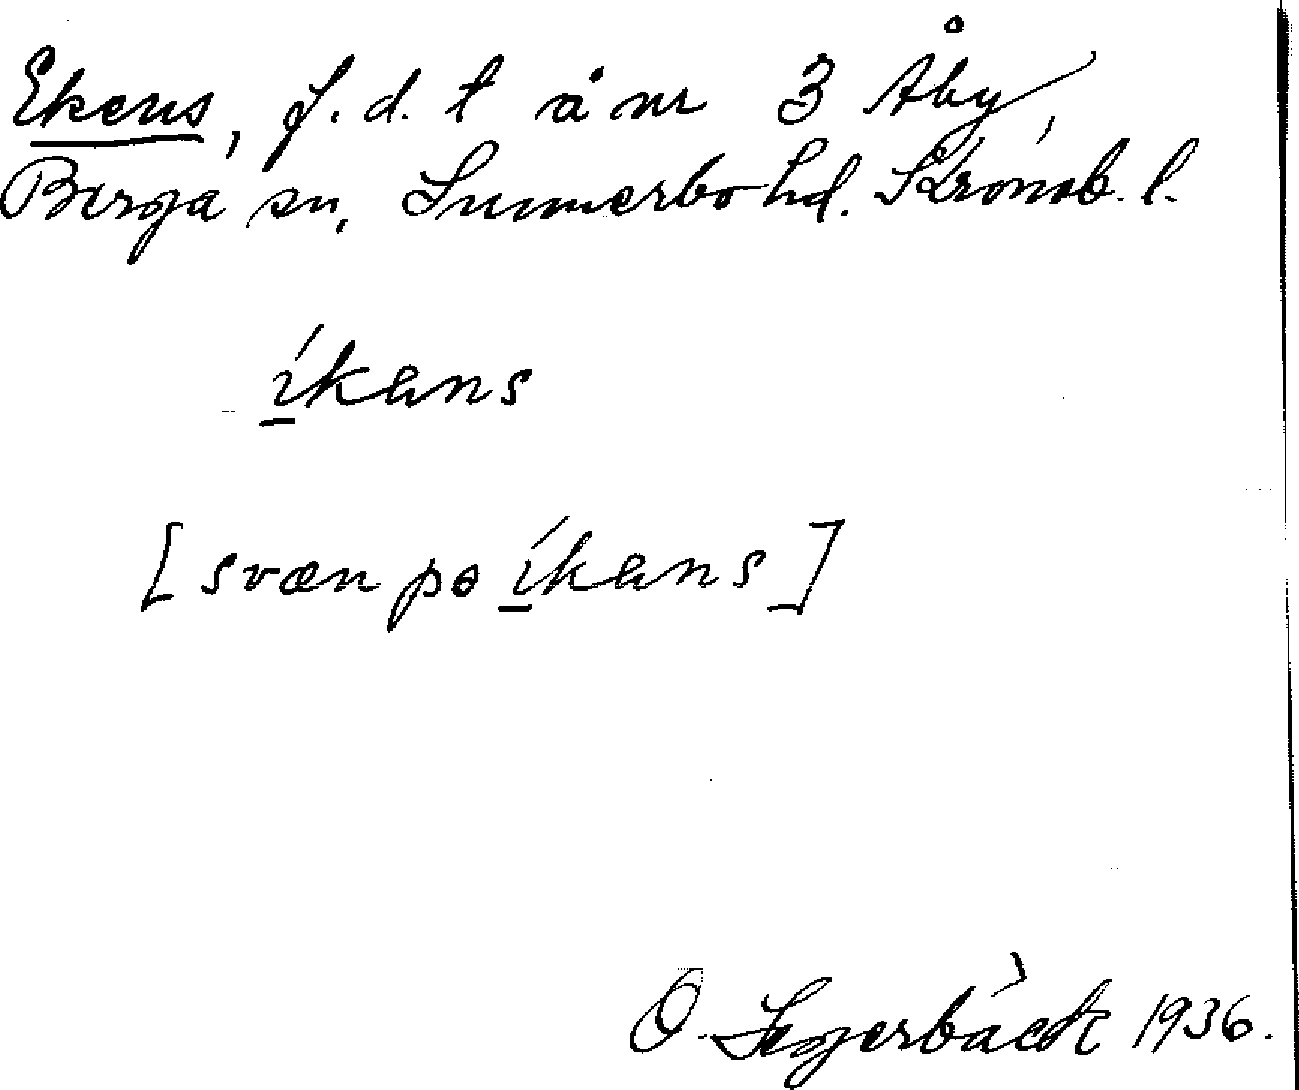 Ekens, f.d. t å nr 3 Åby,
Berga sn, Sunnerbo hd. Kronob. l.
íkans
[svæn po íkans]
O. Segerbäck 1936.